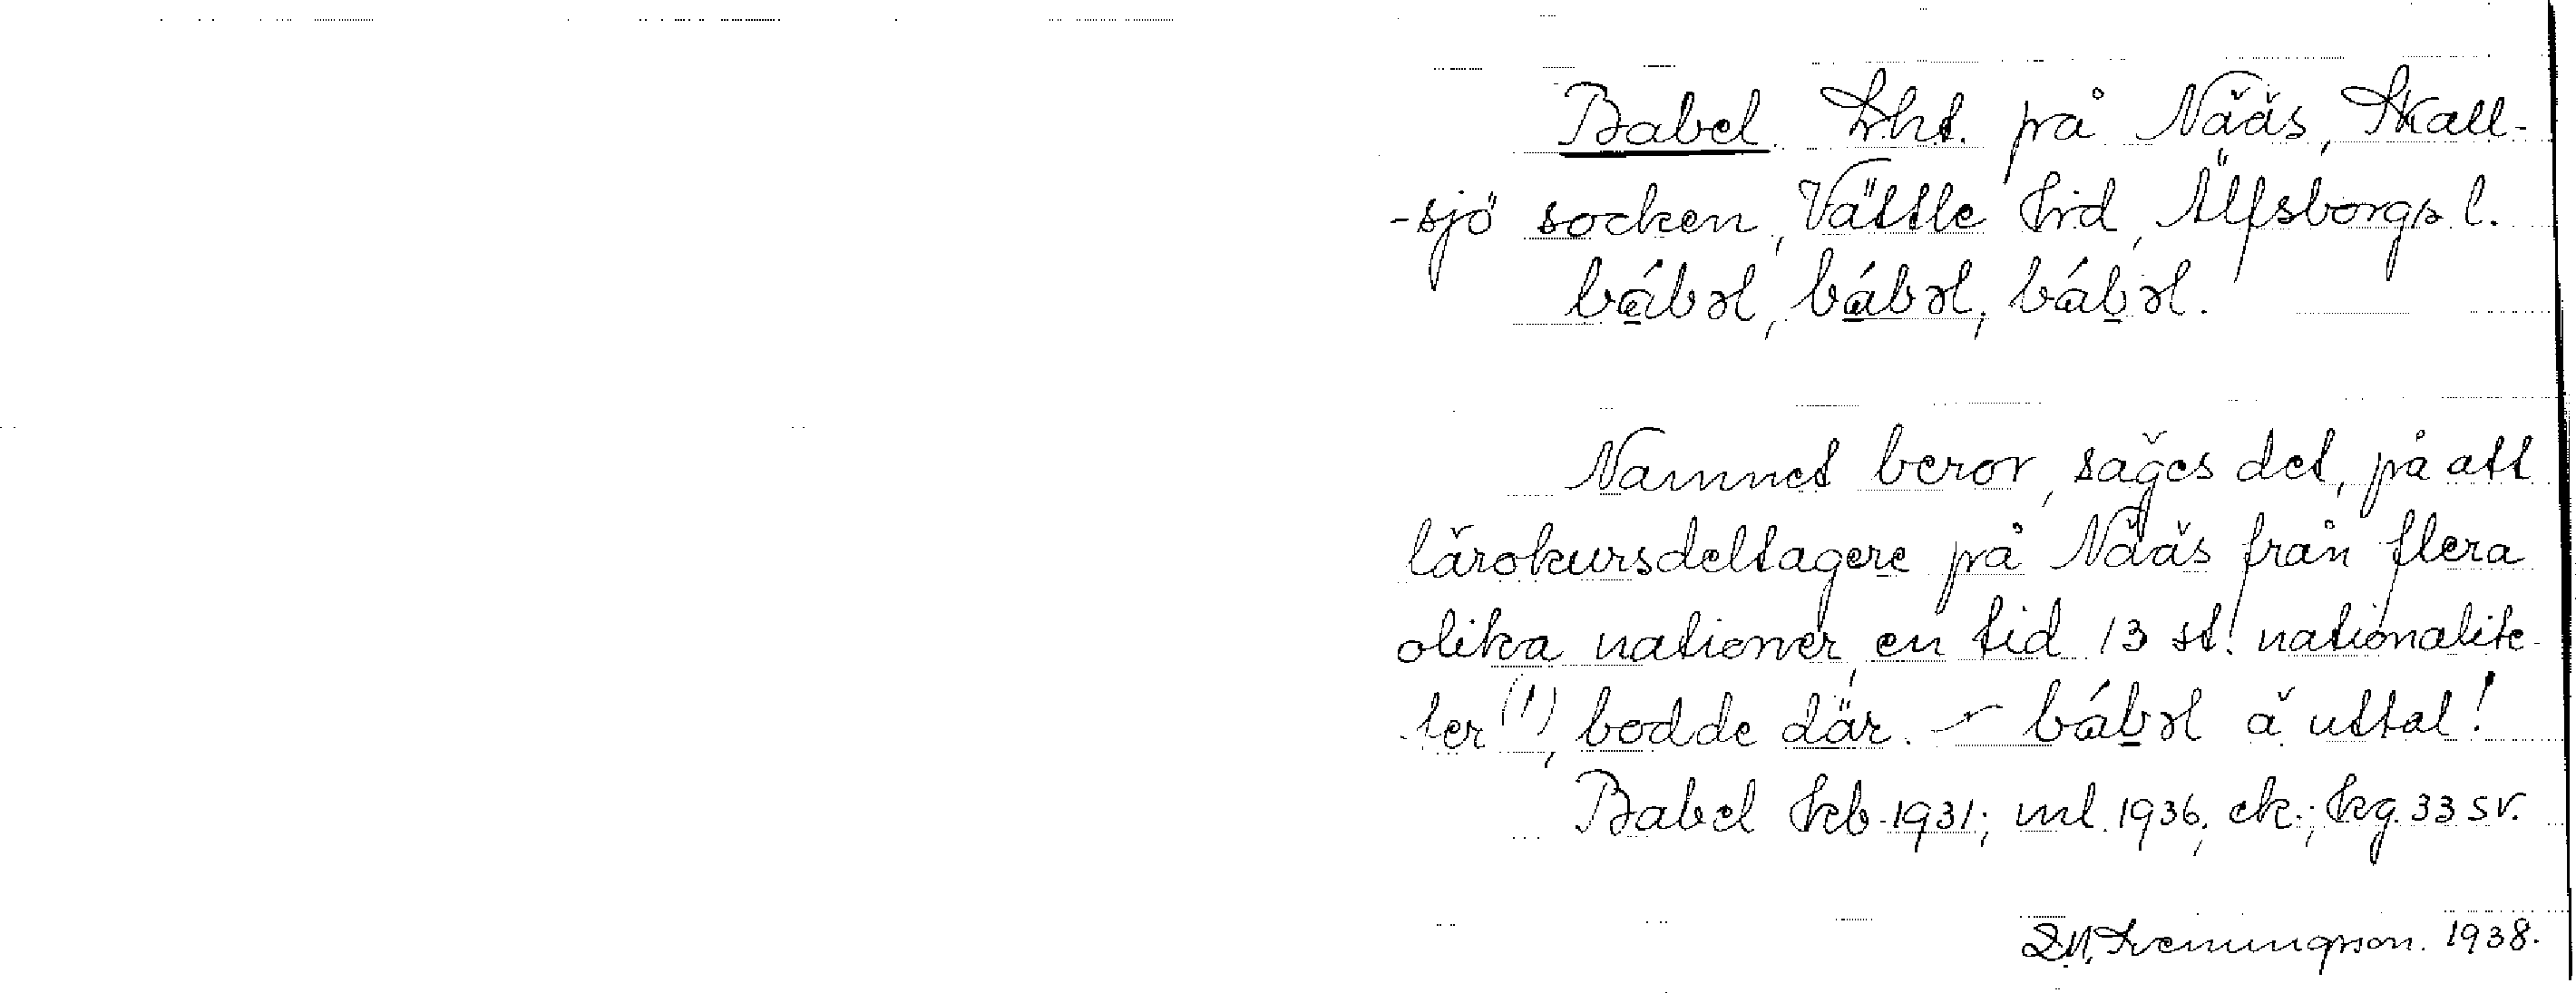 Babel lht. på Nääs, Skall-
-sjö socken, Vättle hrd, Älfsborgs l.
bábəl, bábəl, bábəl.
Namnet beror, säges det, på att
lärokursdeltagere på Nääs från flera
olika nationer, en tid 13 st. nationalite-
-ter (!), bodde där. - bábəl ä uttal!
Babel kb 1931; ml. 1936, ek.; kg. 33 sv.
1938.